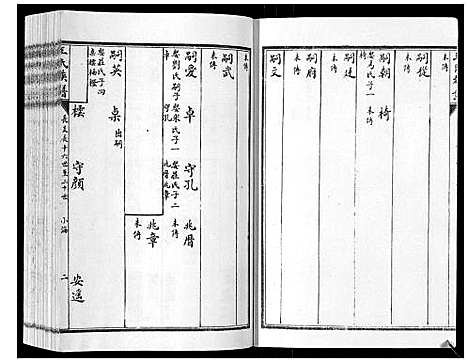 嗣從
未傳
嗣朝
娶馬氏子一
椅
未傳
嗣建
未傳
嗣府
未傳
嗣文
未傳
嗣武
未傳
嗣愛
娶劉氏嗣子
卓
卓
娶宋氏子一
守孔
守孔
娶莊氏子二
兆曆
兆曆
未傳
兆章
未傳
嗣英
娶莊氏子四
桌
出嗣
守顏
王氏族譜
長支長十六世至二十世
小海
二
安遥